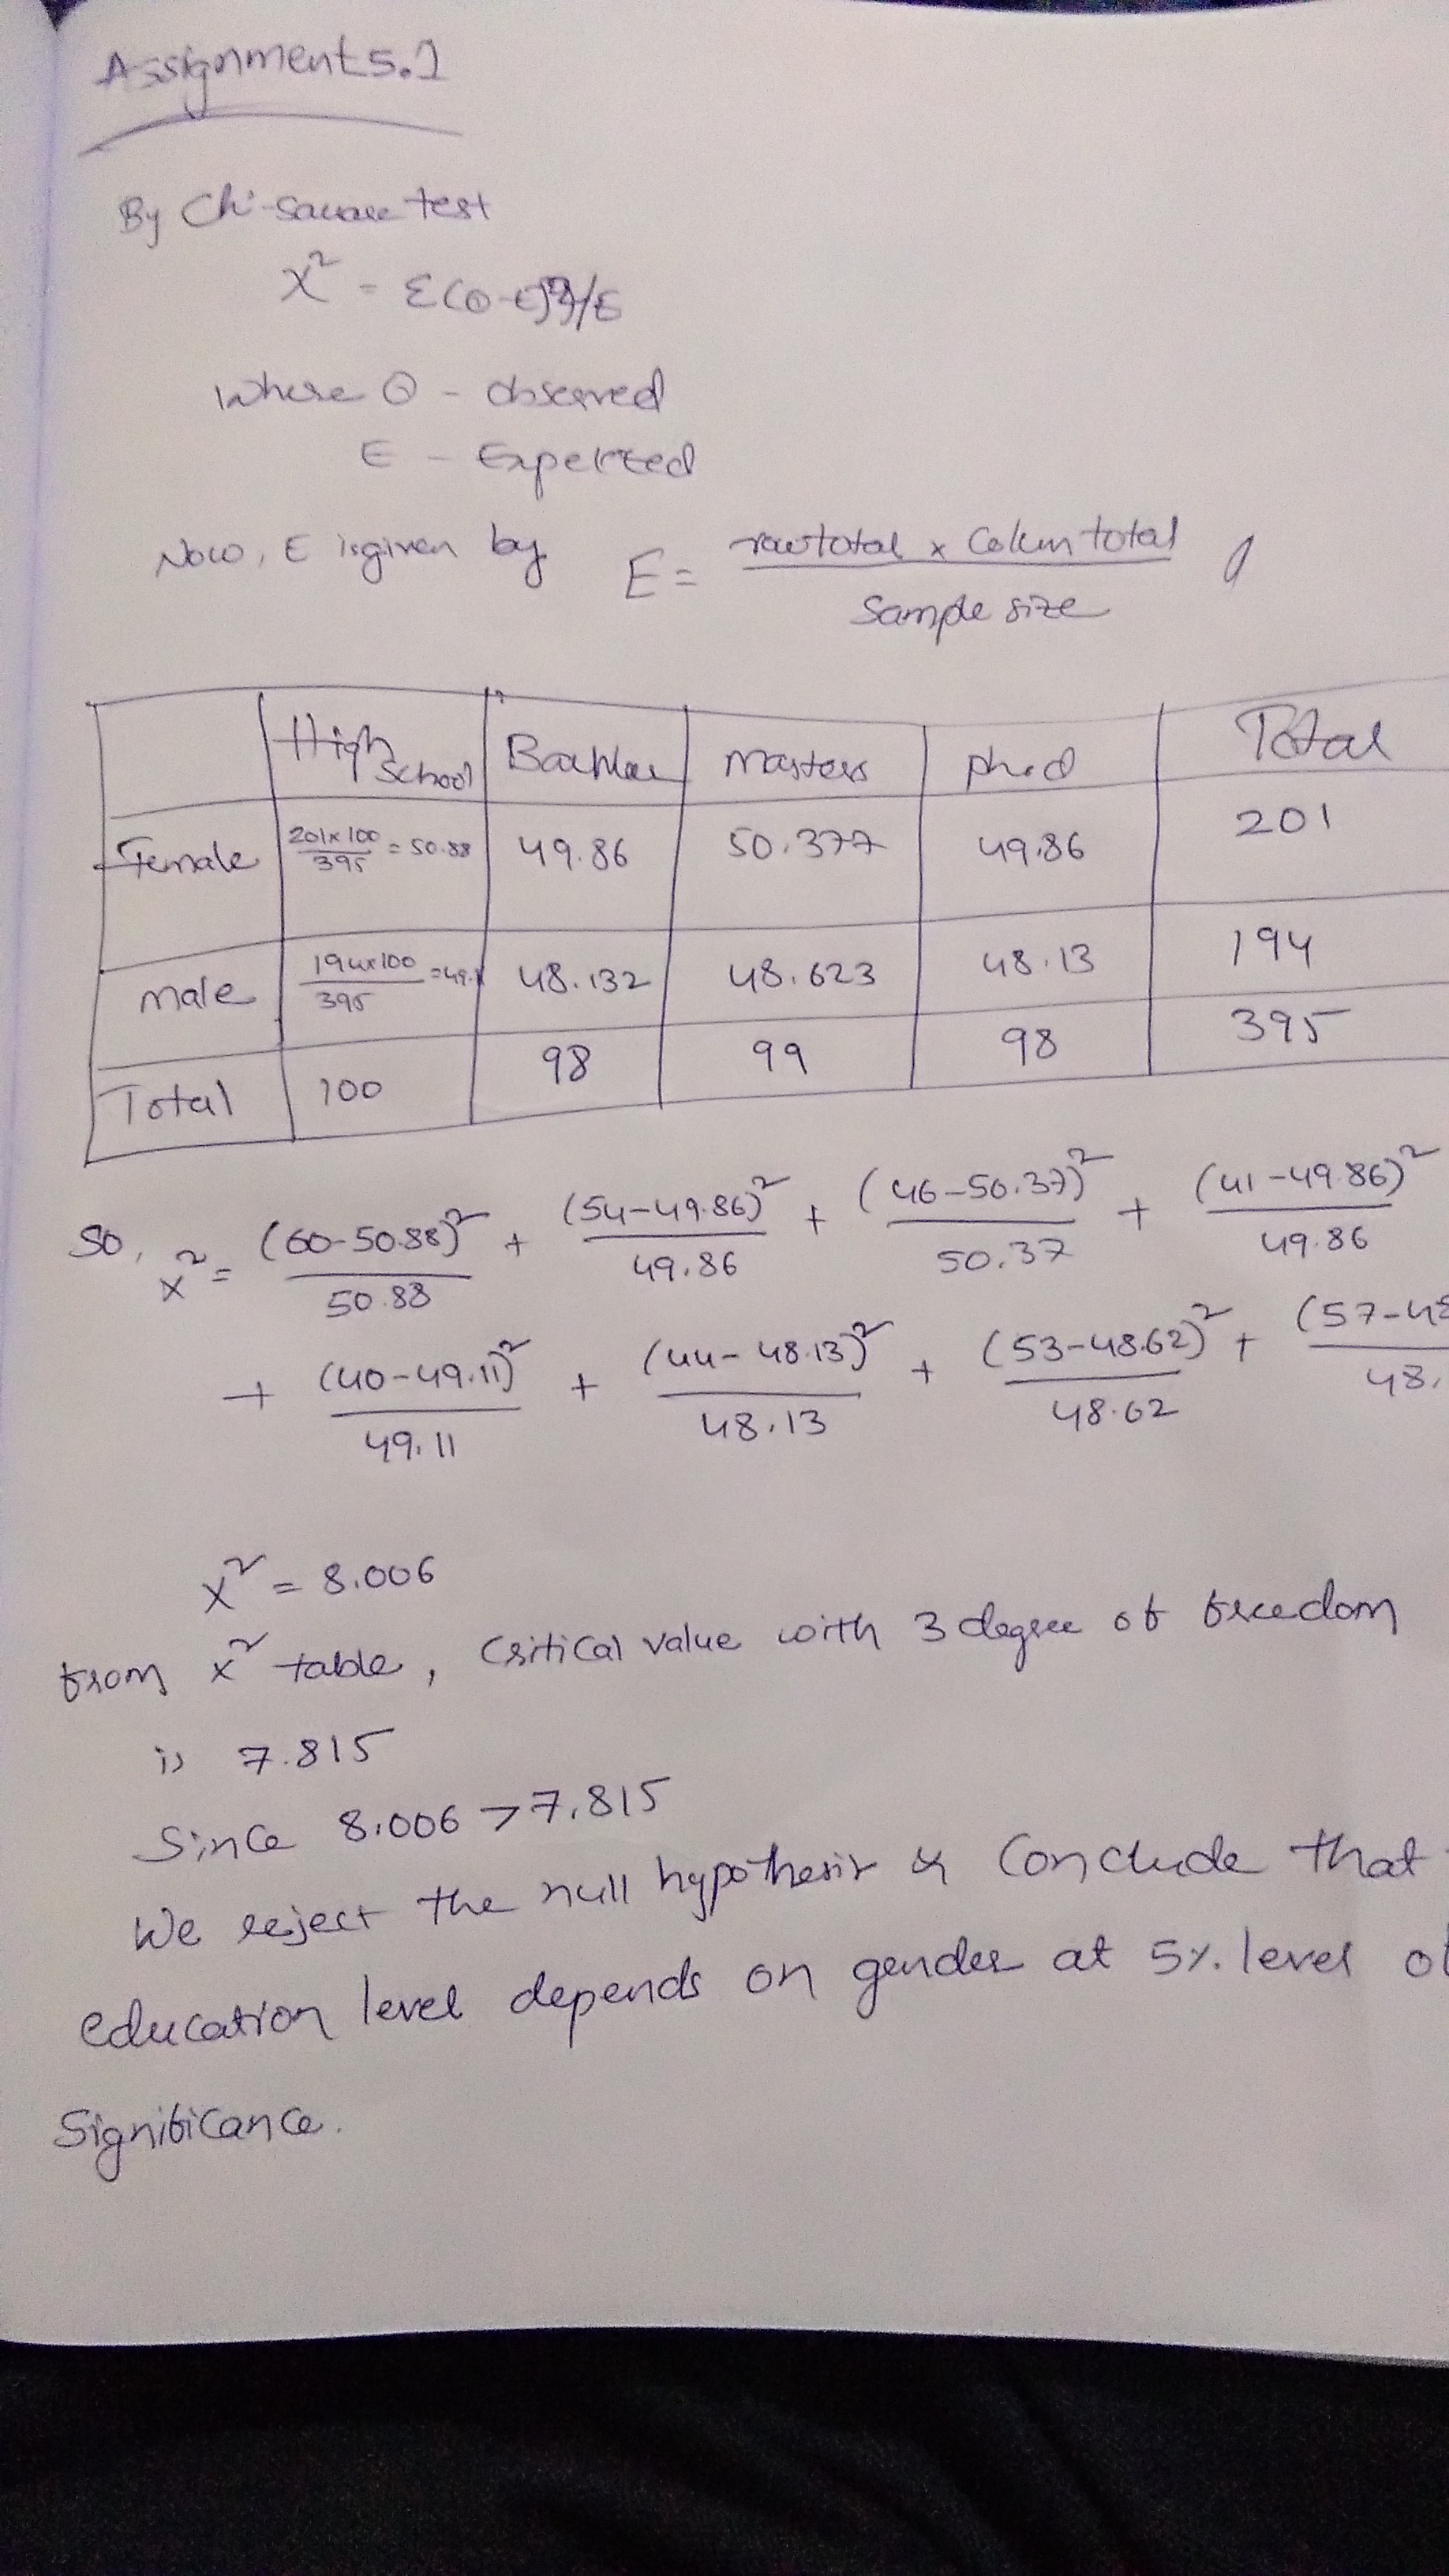 Assignment 5.1
By Chi-Square test
X² = Σ(O-E)²/E
Where O - observed
E - Expected
Now, E is given by E = row total x Colum total / Sample size
High School Bachler masters ph.d Total
Female 201x100/395 = 50.88 49.86 50.377 49.86 201
male 194x100/395 =49.1 48.132 48.623 48.13 194
Total 100 98 99 98 395
So, x² = (60-50.88)²/50.88 + (54-49.86)²/49.86 + (46-50.37)²/50.37 + (41-49.86)²/49.86
+ (40-49.11)²/49.11 + (44-48.13)²/48.13 + (53-48.62)²/48.62 + (57-48/48.
X² = 8.006
from x² table, Critical value with 3 degree of freedom
is 7.815
Since 8.006 > 7.815
We reject the null hypothesis & Conclude that
education level depends on gender at 5% level of
Significance.